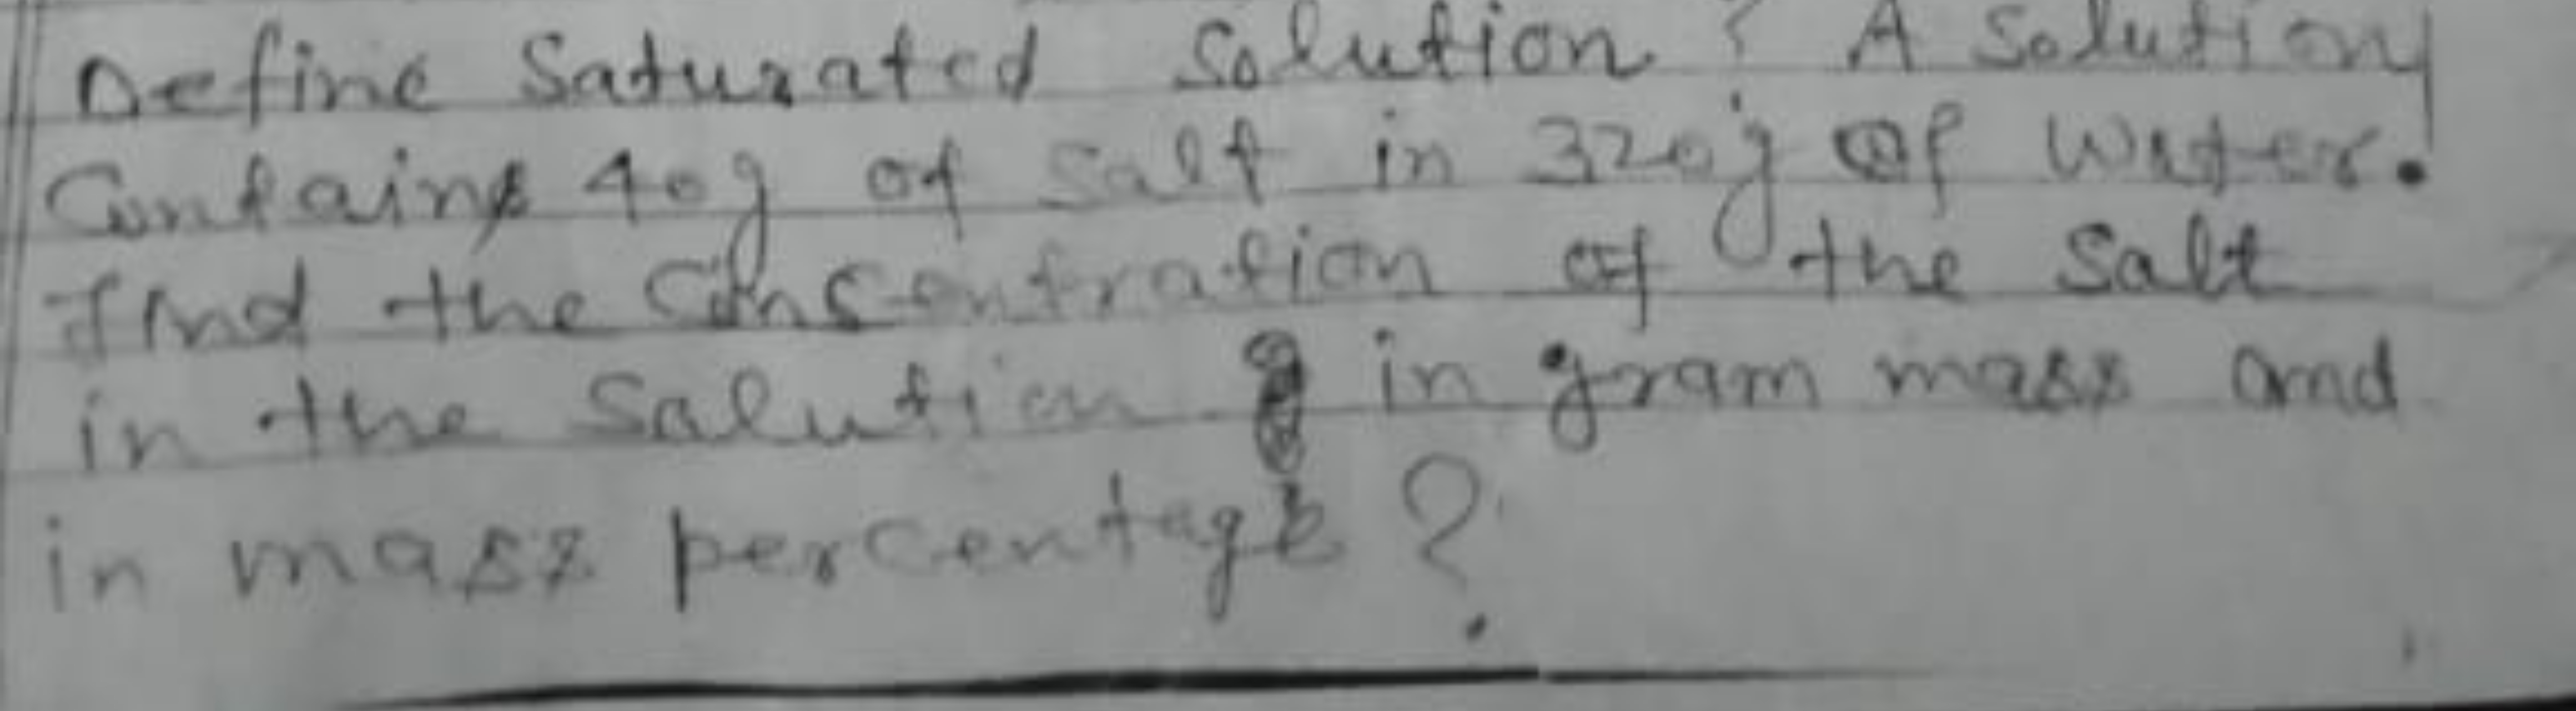 Define Saturated Solution ? A Solution
Contains 40g of Salt in 320g of Water.
Find the Consentration of the Salt
in the Salution in gram mass and
in mass percentage ?